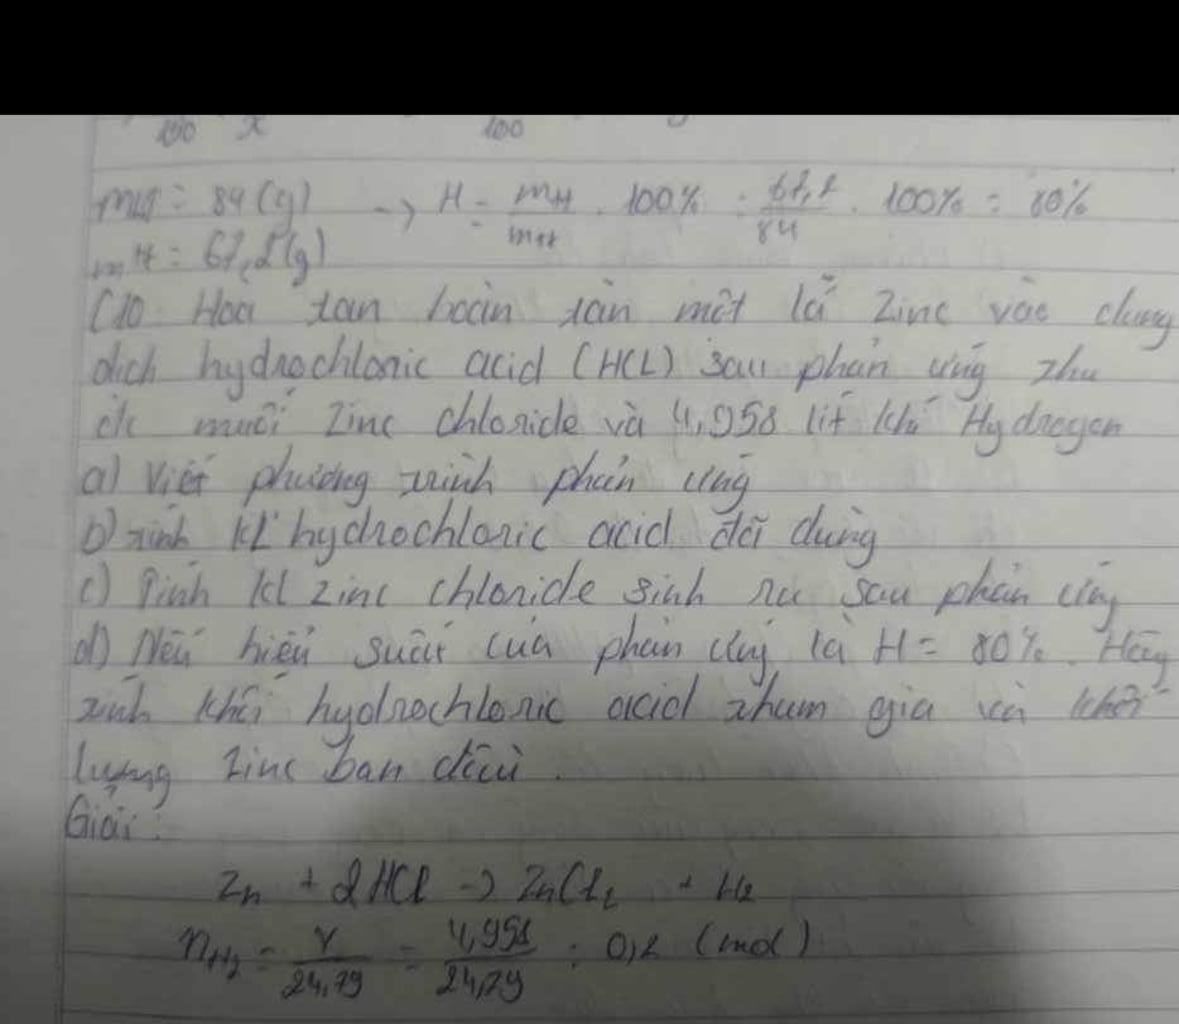 100 x 100
mLT = 84 (g) -> H = mtt / mtt . 100% = 67,2 / 84 . 100% = 80%
mtt = 67,2 (g)
C10. Hoà tan hoàn tàn một lá Zinc vào dung
dịch hydrochloric acid (HCL) sau phản ứng thu
đc muối Zinc chloride và 4,958 lít khí Hydrogen
a) Viết phương trình phản ứng
b) tính kL hydrochloric acid đã dùng
c) Tính kl zinc chloride sinh ra sau phản ứng
d) Nếu hiệu suất của phản ứng là H = 80%. Hãy
tính khối hydrochloric acid tham gia và khối
lượng Zinc ban đầu.
Giải:
Zn + 2HCl -> ZnCl2 + H2
nH2 = V / 24,79 = 4,958 / 24,79 = 0,2 (mol)